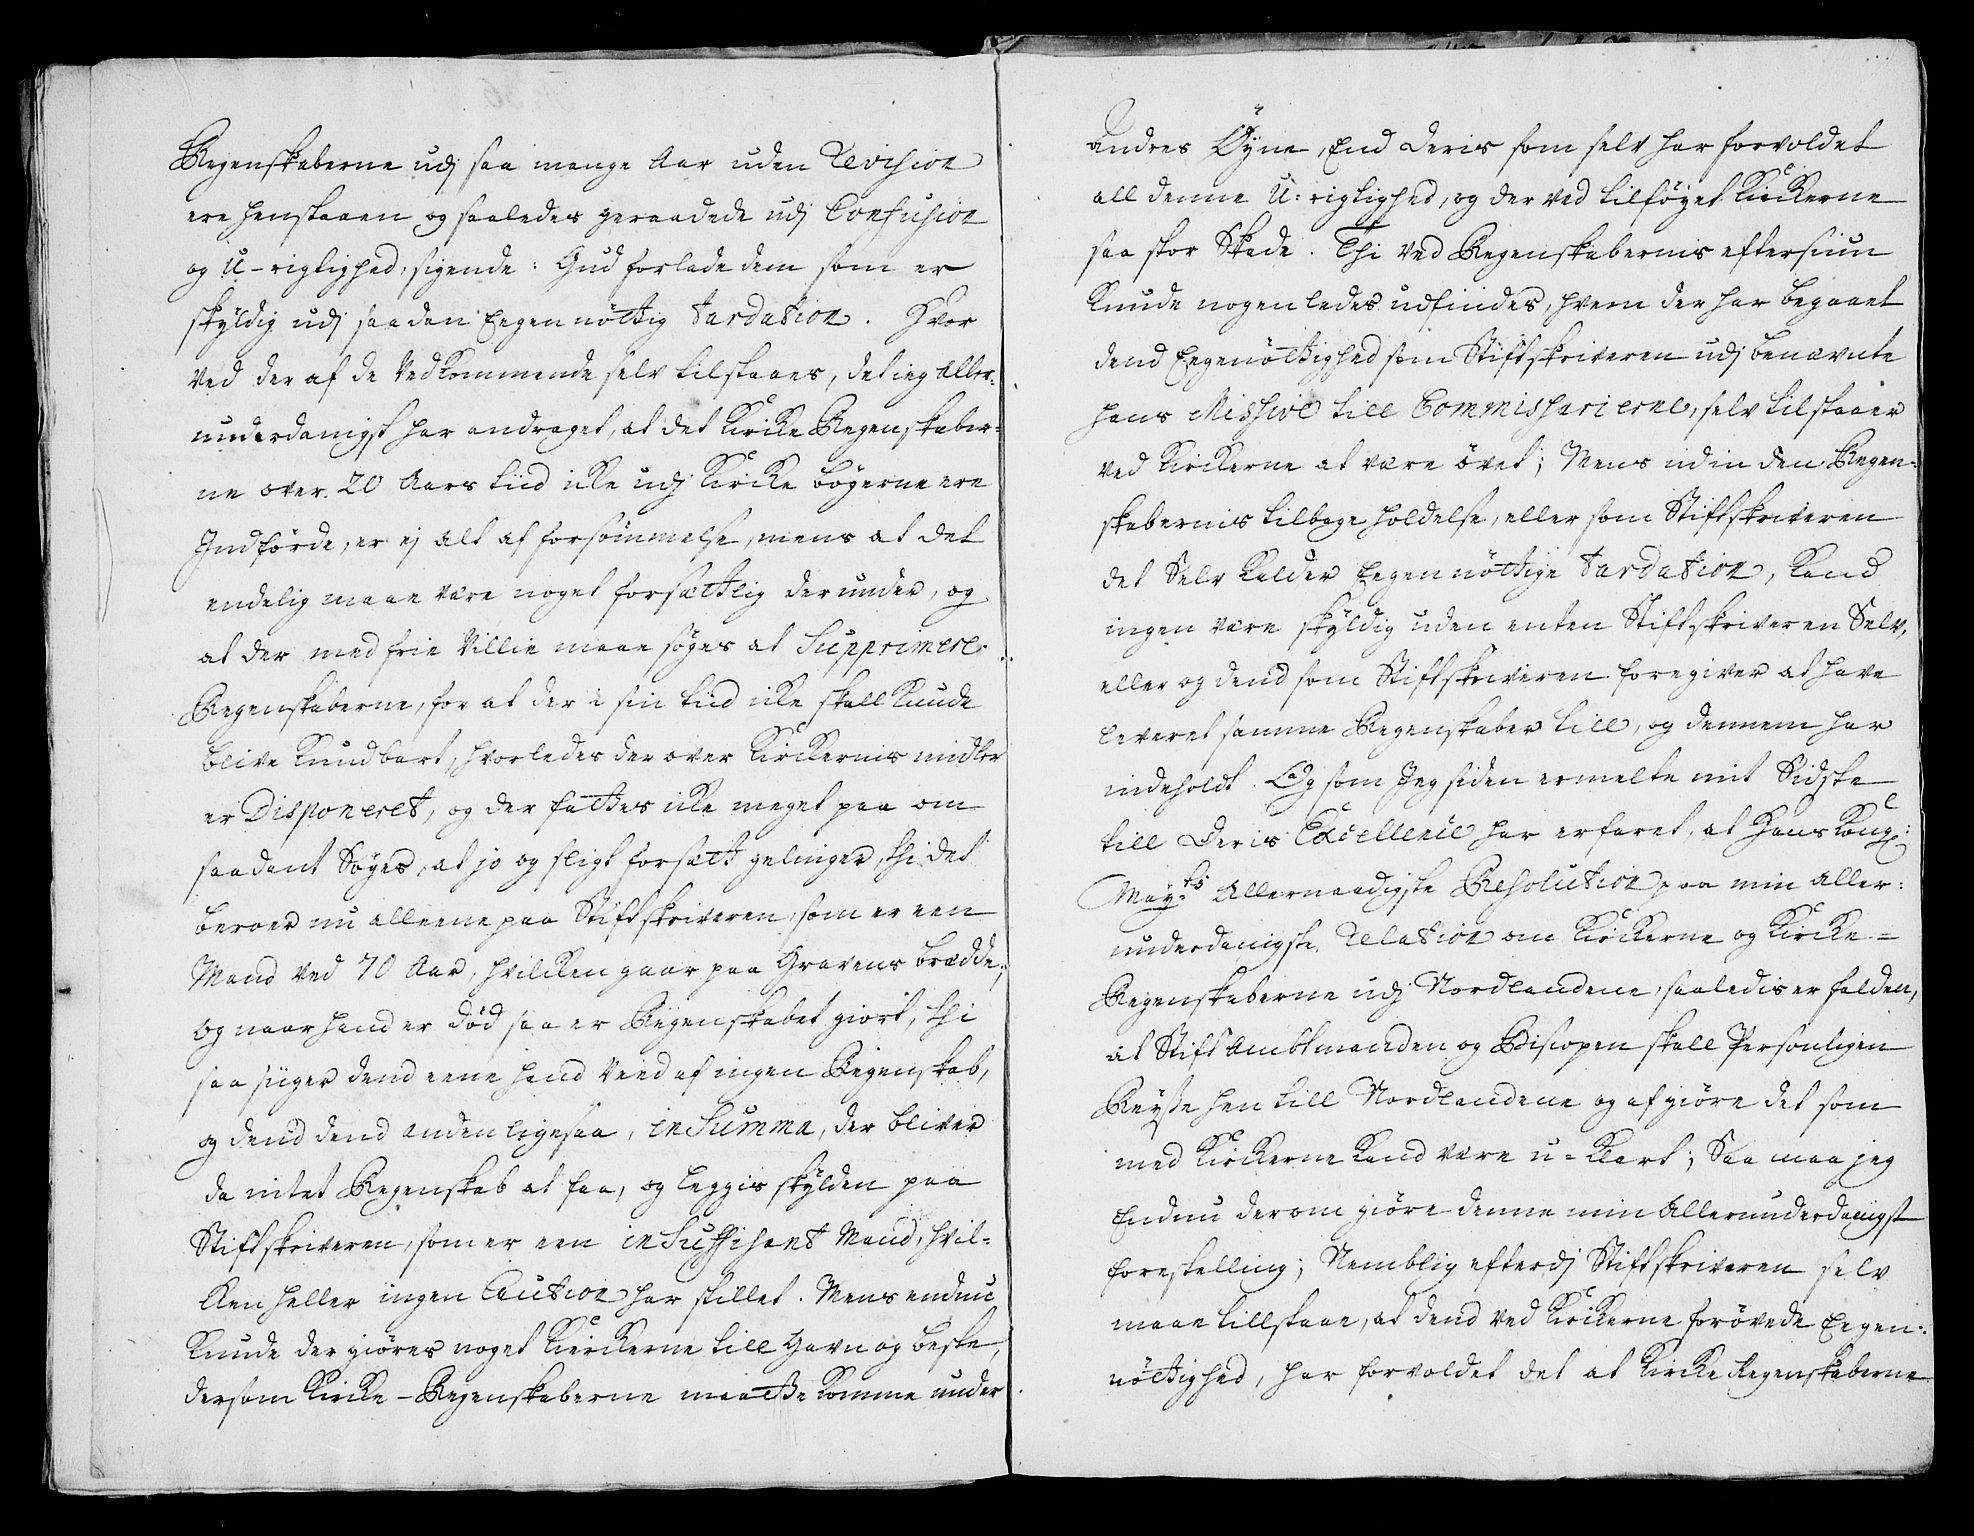 Regenskaberne udj saa mange Aar uden Revision
ere henstaaen og saaledes geraadede udj Confusion
og U-rigtighed, sigende: Gud forlade dem som er
skyldig udj saadan Eegennöttig tardation. Hvor
ved der af de Vedkommende selv tilstaaes, det ieg Aller-
underdanigst har andraget, at det Kircke Regenskaber-
ne over 20 Aars tiid icke udj Kircke bögerne ere
Indförde, er ej alt af forsömmelse, mens at det
endelig maae være noget forsættlig derunder, og
at der med frie Villie maae söges at Supprimere
Regenskaberne, for at der i sin tiid icke skall kunde
blive kundbart, hvorledes der over Kirckernis midler
er Disponeret, og der fattes icke meget paa om
saadant Söges, at jo og sligt forsætt gelinger, thi det
beroer nu alleene paa Stiftskriveren, som er een
Mand ved 70 Aar, hvilcken gaar paa Gravens bredde,
og naar hand er död saa er Regenskabet giort, thi
saa siiger dend eene hand veed af ingen Regenskab,
og dend dend anden ligesaa, in Summa, der bliver
da intet Regenskab at faa, og leggis skylden paa
Stiftskriveren, som er een insuffisant Mand, hvil-
cken heller ingen Caution har stillet. Mens endnu
Kunde der giöres noget Kirckerne till Gavn og beste,
dersom Kircke-Regenskaberne maatte komme under
andres Öyne, End deris som selv har forvoldet
all denne U-rigtighed, og der ved tilföyet Kirckerne
saa stor Skade. Thi ved Regenskabernis eftersiun
Kunde nogenledes udfindes, hvem der har begaaet
dend Eegenöttighed som Stiftskriveren udj benævnte
hans Missive till Commissarierne, selv tilstaaer
ved Kirckerne at være övet; Mens udin den Regen-
skabernis tilbage holdelse, eller som Stiftskriveren
det Selv kalder Eegennöttige tardation, Kand
ingen være skyldig uden enten Stiftskriveren Selv,
eller og dend som Stiftskriveren foregiver at have
leveret samme Regenskaber till, og dennem har
indeholdt. Og som Jeg siden ermelte mit Sidste
till Deris Excellence har erfaret, at Hans Kong:
May:ts Allernaadigste Resolution paa min Aller-
underdanigste Relation om Kirckerne og Kircke-
Regenskaberne udj Nordlandene, saaledis er falden,
at Stift Ambtmanden og Biscopen skall Personligen
Reyse hen till Nordlandene og afgiöre det som
med Kirckerne kand være u-klart; Saa maa jeg
Endnu derom giöre denne min Allerunderdanigst
forestelling; Nemblig efterdj Stiftskriveren selv
maae tillstaae, at dend ved Kirckerne forövede Eegen-
nöttighed, har forvoldet det at Kircke Regenskaberne